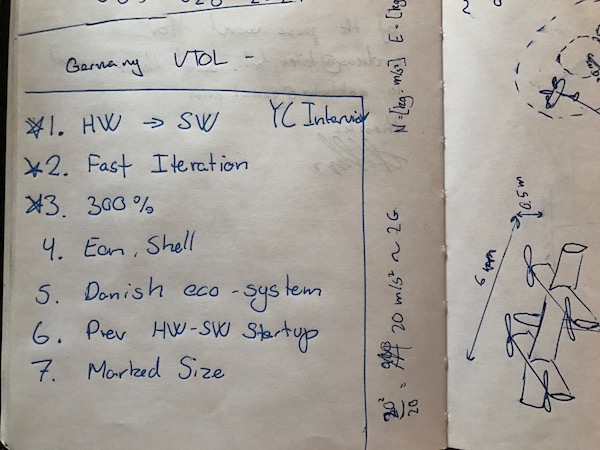 Germany VTOL -
YC Interview
*1. HW → SW
*2. Fast Iteration
*3. 300%
4. Eon, Shell
5. Danish eco-system
6. Prev HW-SW Startup
7. Marked Size
N = [kg · m/s²] E = [kg
20²/20 = 20 m/s² ~ 2G
0.5m
6